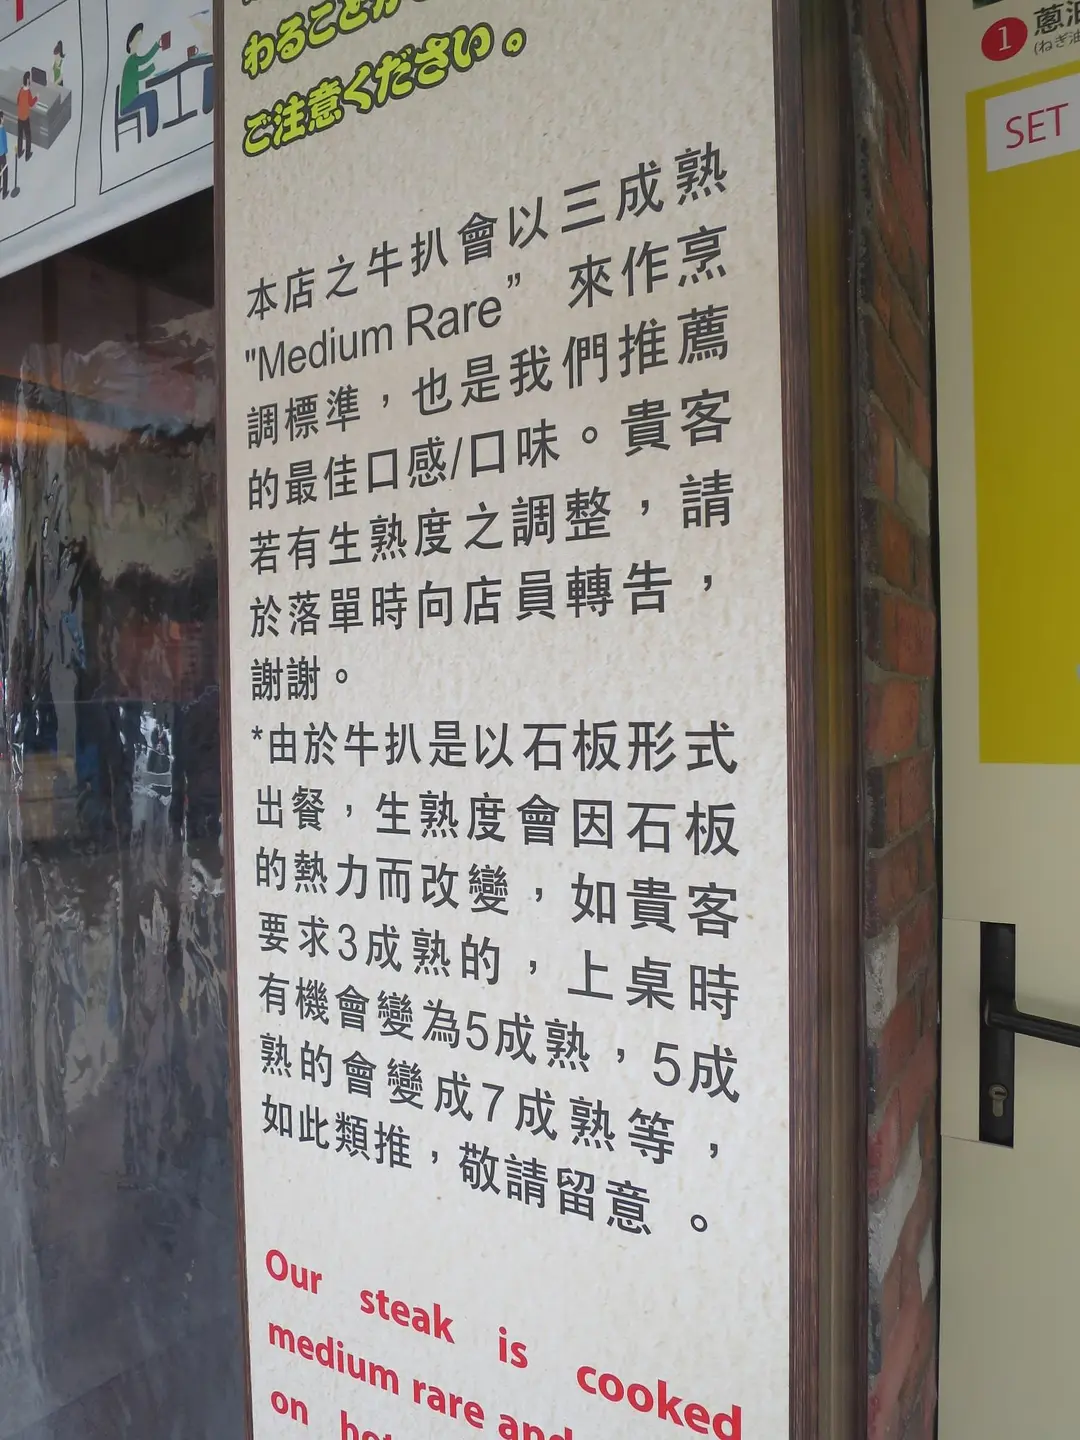 わることが
ご注意ください。
本店之牛扒會以三成熟
"Medium Rare” 來作烹
調標準，也是我們推薦
的最佳口感/口味。貴客
若有生熟度之調整，請
於落單時向店員轉告，
謝謝。
*由於牛扒是以石板形式
出餐，生熟度會因石板
的熱力而改變，如貴客
要求3成熟的，上桌時
有機會變為5成熟，5成
熟的會變成7成熟等，
如此類推，敬請留意。
Our steak is cooked
medium rare and
on
1
SET